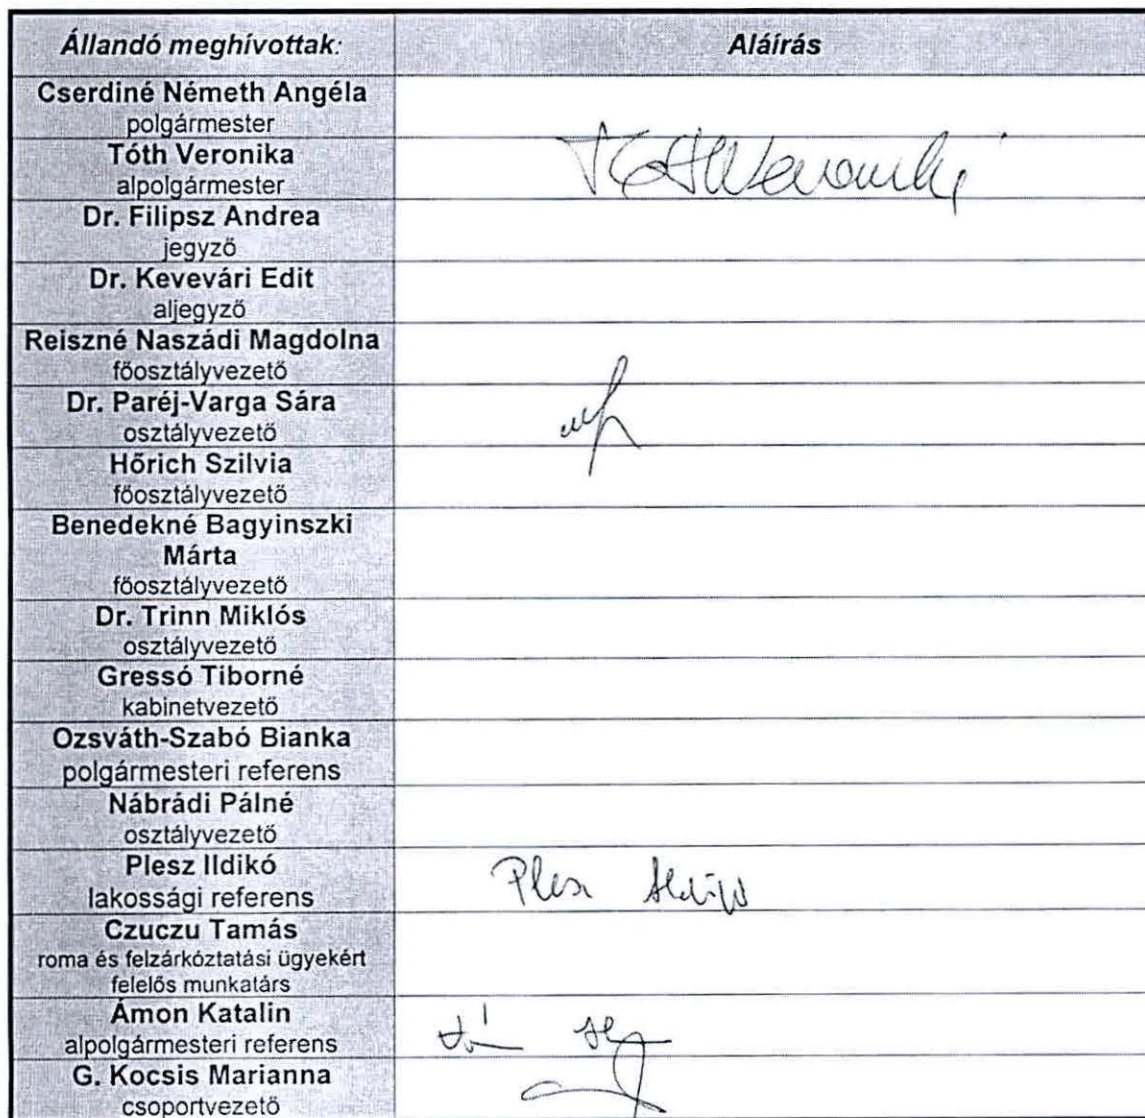 Állandó meghívottak: Aláírás
Cserdiné Németh Angéla
polgármester
Tóth Veronika
alpolgármester
Dr. Filipsz Andrea
jegyző
Dr. Kevevári Edit
aljegyző
Reiszné Naszádi Magdolna
főosztályvezető
Dr. Paréj-Varga Sára
osztályvezető
Hőrich Szilvia
főosztályvezető
Benedekné Bagyinszki
Márta
főosztályvezető
Dr. Trinn Miklós
osztályvezető
Gressó Tiborné
kabinetvezető
Ozsváth-Szabó Bianka
polgármesteri referens
Nábrádi Pálné
osztályvezető
Plesz Ildikó
lakossági referens
Czuczu Tamás
roma és felzárkóztatási ügyekért
felelős munkatárs
Ámon Katalin
alpolgármesteri referens
G. Kocsis Marianna
csoportvezető